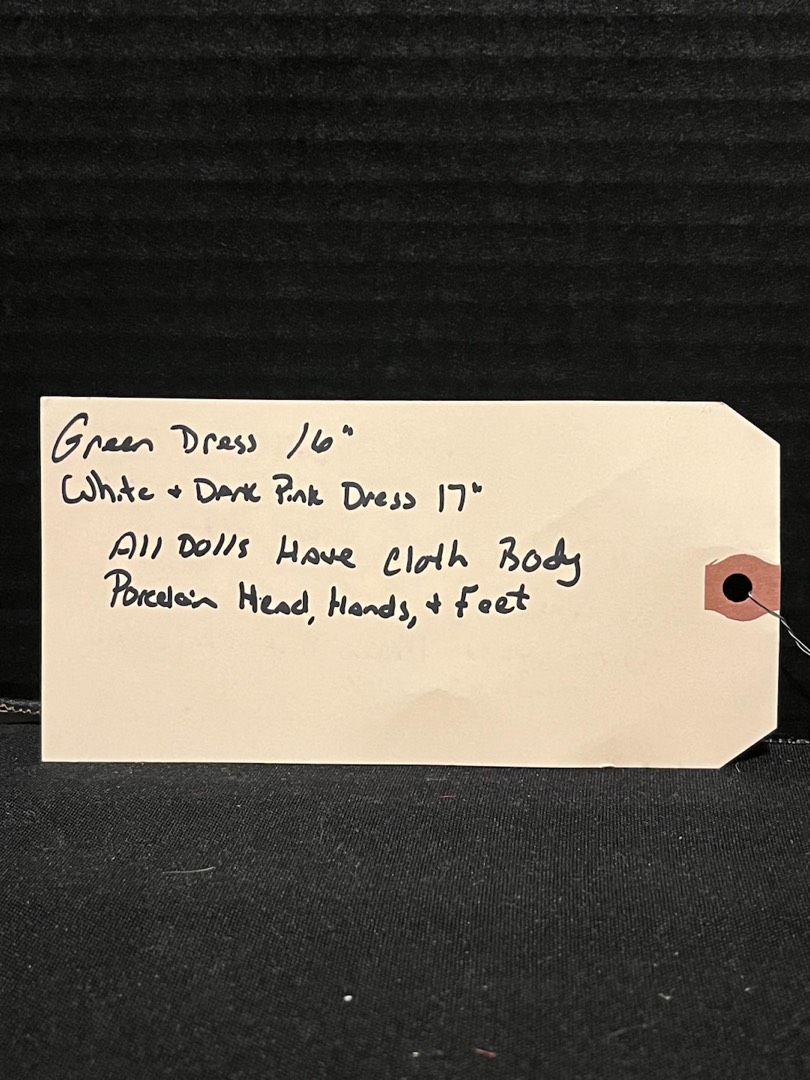 Green Dress 16"
White + Dark Pink Dress 17"
All Dolls Have Cloth Body
Porcelain Head, Hands, + Feet